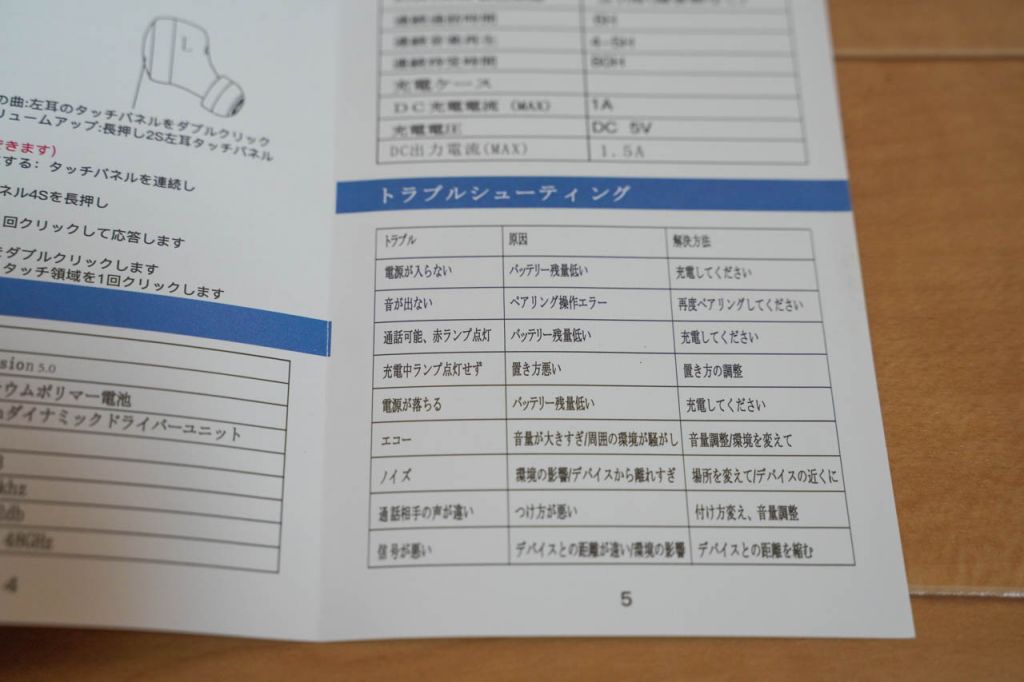 L
の曲:左耳のタッチパネルをダブルクリック
リュームアップ:長押し2S左耳タッチパネル
できます)
する: タッチパネルを連続し
ネル4Sを長押し
回クリックして応答します
をダブルクリックします
タッチ領域を1回クリックします
sion 5.0
ウムポリマー電池
ダイナミックドライバーユニット
4
連続通話時間
連続音楽再生 4-5H
連続待受時間
充電ケース
DC充電電流 (MAX) 1A
充電電圧 DC 5V
DC出力電流(MAX) 1.5A
トラブルシューティング
トラブル 原因 解決方法
電源が入らない バッテリー残量低い 充電してください
音が出ない ペアリング操作エラー 再度ペアリングしてください
通話可能、赤ランプ点灯 バッテリー残量低い 充電してください
充電中ランプ点灯せず 置き方悪い 置き方の調整
電源が落ちる バッテリー残量低い 充電してください
エコー 音量が大きすぎ/周囲の環境が騒がし 音量調整/環境を変えて
ノイズ 環境の影響/デバイスから離れすぎ 場所を変えて/デバイスの近くに
通話相手の声が遠い つけ方が悪い 付け方変え、音量調整
信号が悪い デバイスとの距離が遠い/環境の影響 デバイスとの距離を縮む
5